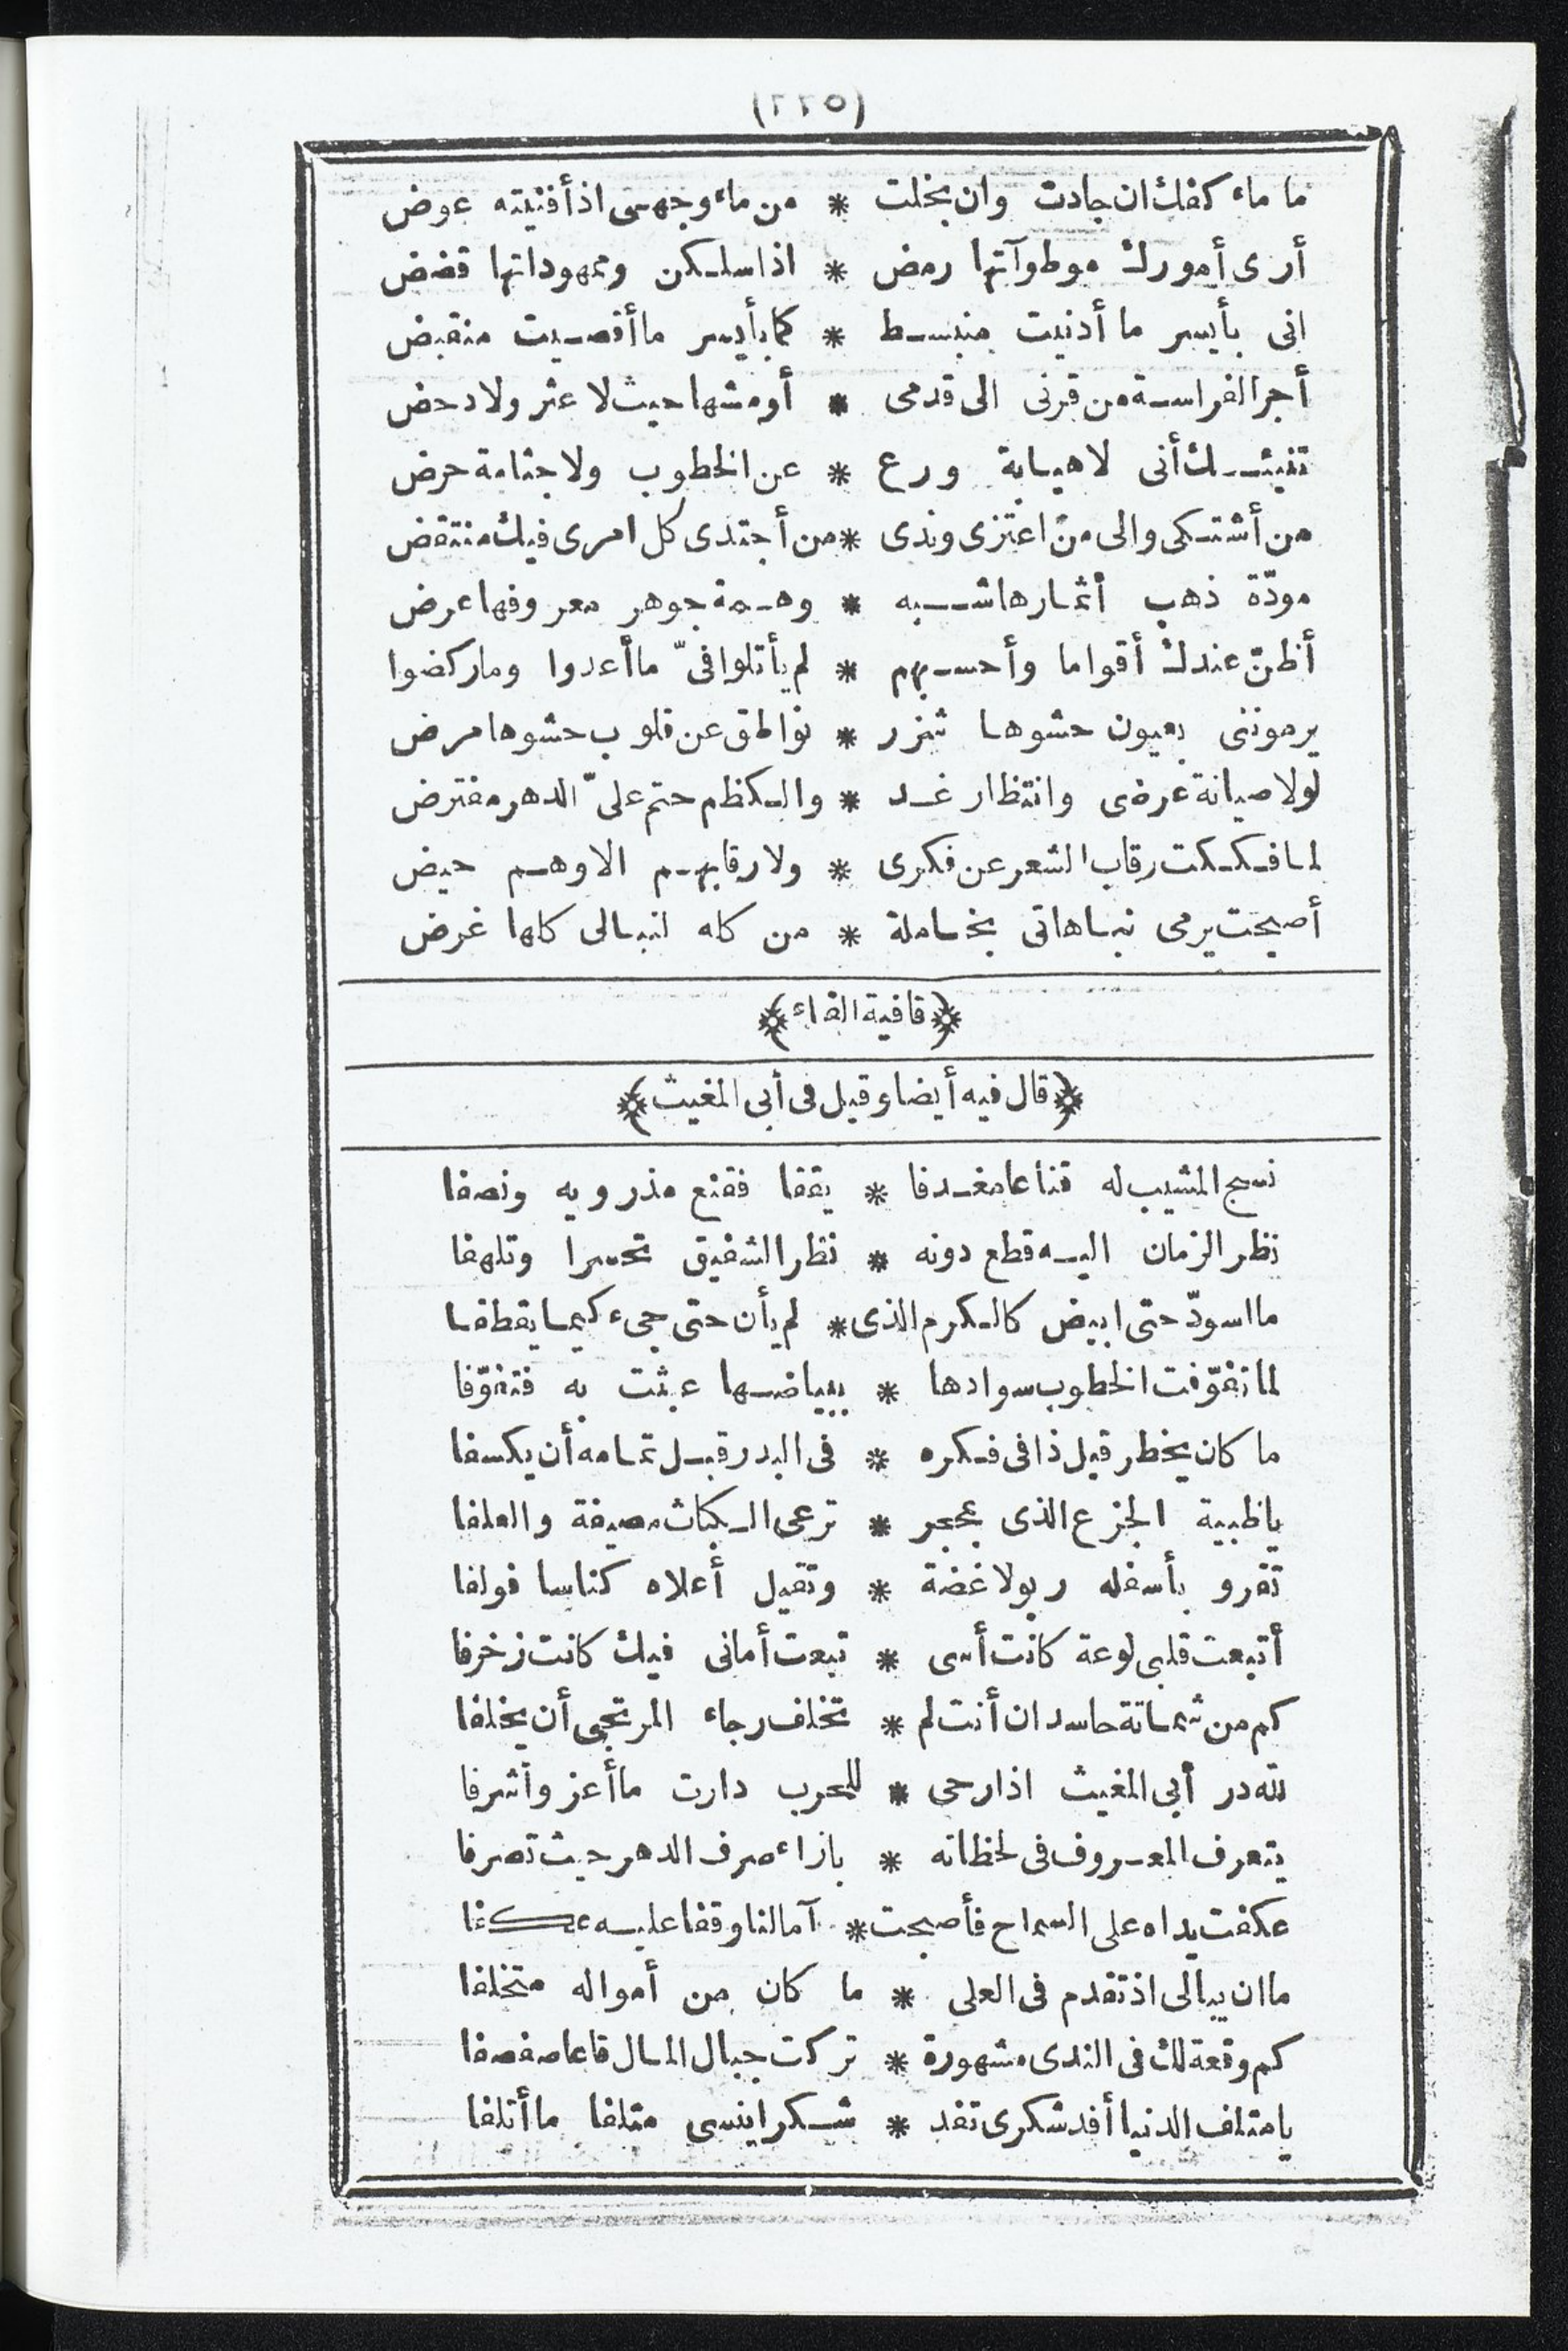 (٢٢٥)
ما ماء كفك ان جادت وان بخلت * من ماء وجهى اذ أفنيته عوض
أرى أمورك موطوآتها رمض * اذا سلكن وممهوداتها قضض
انى بأيسر ما أدنيت منبسط * كما بأيسر ما أقصيت منقبض
أجر الفراسة من قرنى الى قدمى * أومشها حيث لا عثر ولا دحض
تنبيك أنى لا هيابة ورع * عن الخطوب ولا جثامة حرض
من أشتكى والى من اعتزى وندى * من أجتدى كل امرى فيك منتقض
مودّة ذهب أثمارها شبه * وهمة جوهر معروفها عرض
أظنّ عندك أقواما وأحسبهم * لم يأتلوا فىّ ما أعدوا وما ركضوا
يرموننى بعيون حشوها شزر * نواطق عن قلوب حشوها مرض
لولا صيانة عرضى وانتظار غد * والكظم حتم علىّ الدهر مفترض
لما فككت رقاب الشعر عن فكرى * ولا رقابهم الا وهم حيض
أصبحت يرمى نباهاتى بخاملة * من كله لنبالى كلها غرض
﴿قافية الفاء﴾
﴿قال فيه أيضا وقيل فى أبى المغيث﴾
نسج المشيب له قناعا مغدفا * يققا فقنع مذرويه ونصفا
نظر الزمان اليه قطع دونه * نظر الشفيق تحسرا وتلهفا
ما اسودّ حتى ابيض كالكرم الذى * لم يأن حتى جىء كيما يقطفا
لما تفوّفت الخطوب سوادها * ببياضها عبثت به فتفوّفا
ما كان يخطر قبل ذا فى فكره * فى البدر قبل تمامه أن يكسفا
يا ظبية الجزع الذى بمحجر * ترعى الكباث مصيفة والعلفا
تقرو بأسفله ربولا غضة * وتقيل أعلاه كناسا فولفا
أتبعت قلبى لوعة كانت أسى * تبعت أمانى فيك كانت زخرفا
كم من شماتة حاسد ان أنت لم * تخلف رجاء المرتجى أن يخلفا
لله در أبى المغيث اذا رحى * للحرب دارت ما أعز وأشرفا
يتعرف المعروف فى لحظاته * بازاء صرف الدهر حيث تصرفا
عكفت يداه على السماح فأصبحت * آمالنا وقفا عليه عكفا
ما ان يبالى اذ تقدم فى العلى * ما كان من أمواله متخلفا
كم وقعة لك فى الندى مشهورة * تركت جبال المال قاعا صفصفا
يا متلف الدنيا أفد شكرى تفد * شكرا ينسى متلفا ما أتلفا